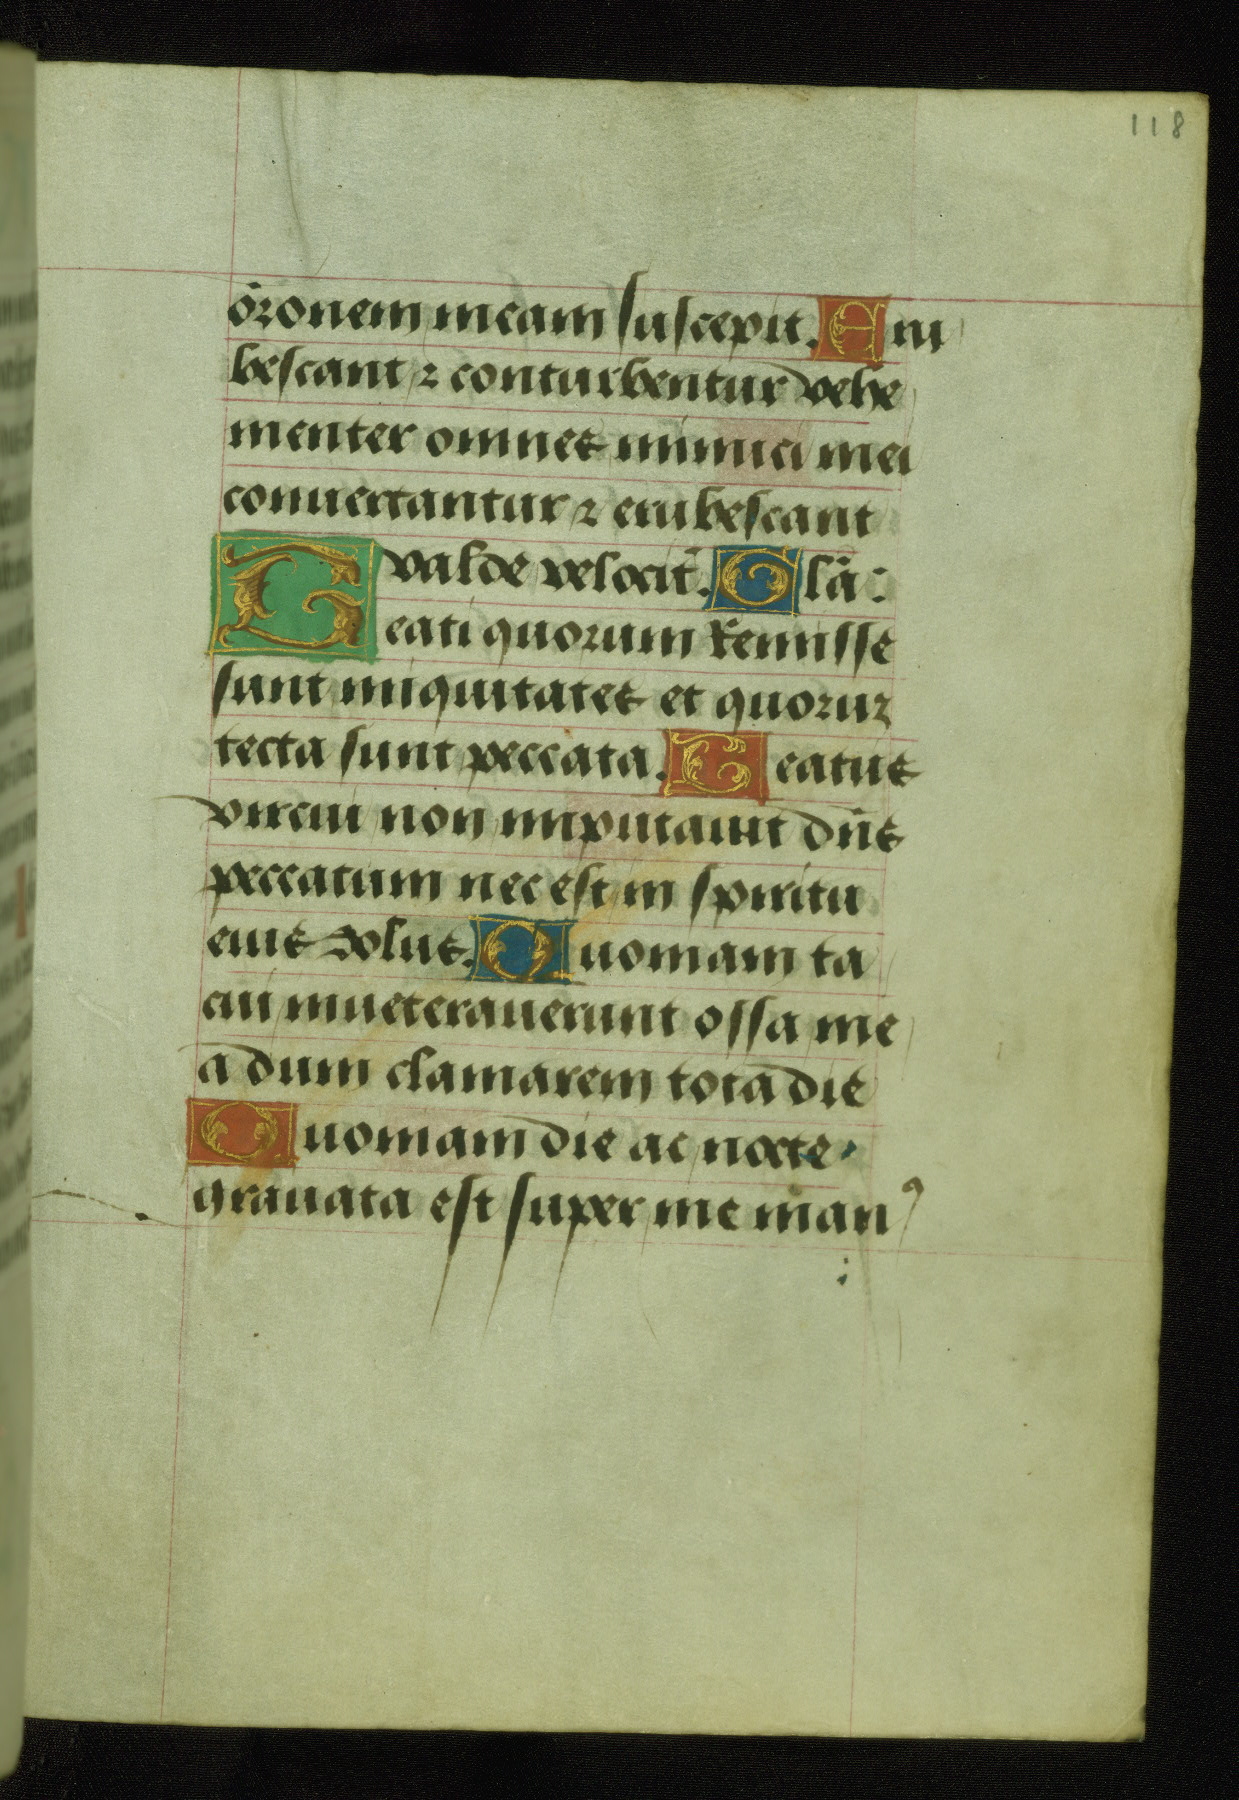 118
or̄onem meam suscepit. Eru
bescant ⁊ conturbentur vehe
menter omnes inimici mei
conuertantur ⁊ erubescant
valde velocit̄. Glā:
Beati quorum Remisse
sunt iniquitates et quoruz
tecta sunt peccata. Beatus
vir cui non imputauit dn̄s
peccatum nec est in spiritu
eius dolus. Quoniam ta
cui inueterauerunt ossa me
a dum clamarem tota die
Quoniam die ac nocte
grauata est super me man⁹